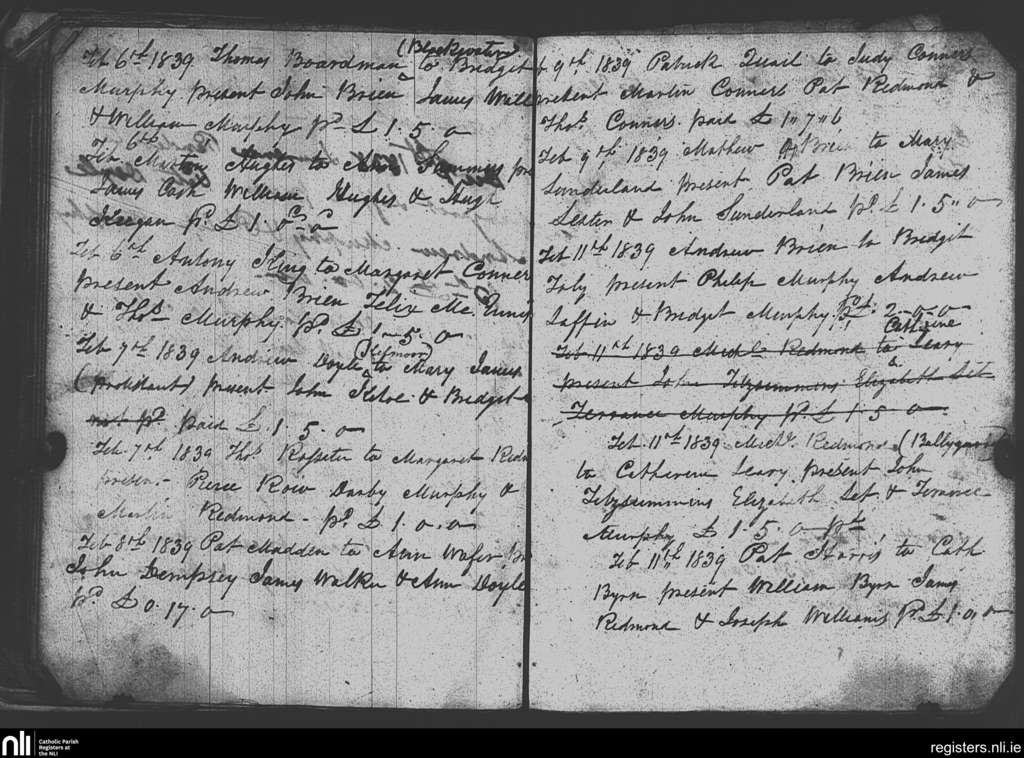 (Blackwater)
Feb 6th 1839 Thomas Boardman to Bridget
Murphy present John Brien James
& William Murphy pd £ 1. 5. 0
Feb 6th
Martin Hughes to Ann
James Cash William Hughes & Hugh
Keegan pd £ 1. 0. 0
Feb 6th Antony King to Margaret Conner
present Andrew Brien Felix Mc
& Thos Murphy pd £ 1 - 5. 0
Feb 7th 1839 Andrew Doyle to Mary James
(protistant) present John Kehoe & Bridget
not pd paid £ 1. 5. 0
Feb. 7th 1839 Thos Rosseter to Margaret Redm
presen - Pierce Row Darby Murphy &
Martin Redmond - pd £ 1. 0. 0
Feb 8th 1839 Pat Madden to Ann Wafer
John Dempsey James Walker & Ann Doyle
pd £ 0. 17. 0
9th 1839 Patrick Quail to Judy Conners
present Martin Conners Pat Redmond &
Thos Conners. paid £ 1" 7" 6
Feb 9th 1839 Mathew Brien to Mary
Sunderland present. Pat Brien James
Lester & John Sunderland pd £ 1. 5" 0
Feb 11th 1839 Andrew Brien to Bridgit
Foly present Philip Murphy Andrew
Laffin & Bridget Murphy pd 2-0-0
Catherine
Feb 11th 1839 Michl Redmond to Leary
present John Fitzsimmons Elizabeth Set
Terrance Murphy pd £ 1. 5 0
Feb. 11th 1839 Michl Redmond
to Catherine Leary present John
Fitzsummens Elizabeth Set & Terrance
Murphy £ 1. 5. 0 pd
Feb 11th 1839 Pat Harris to Cath
Byrn present William Byrn James
Redmond & Joseph Williams Pd £ 1. 0. 0
nli
Catholic Parish
Registers at
the NLI
registers.nli.ie